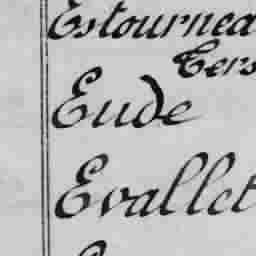 Estournea
Cers
Eude
Evallet